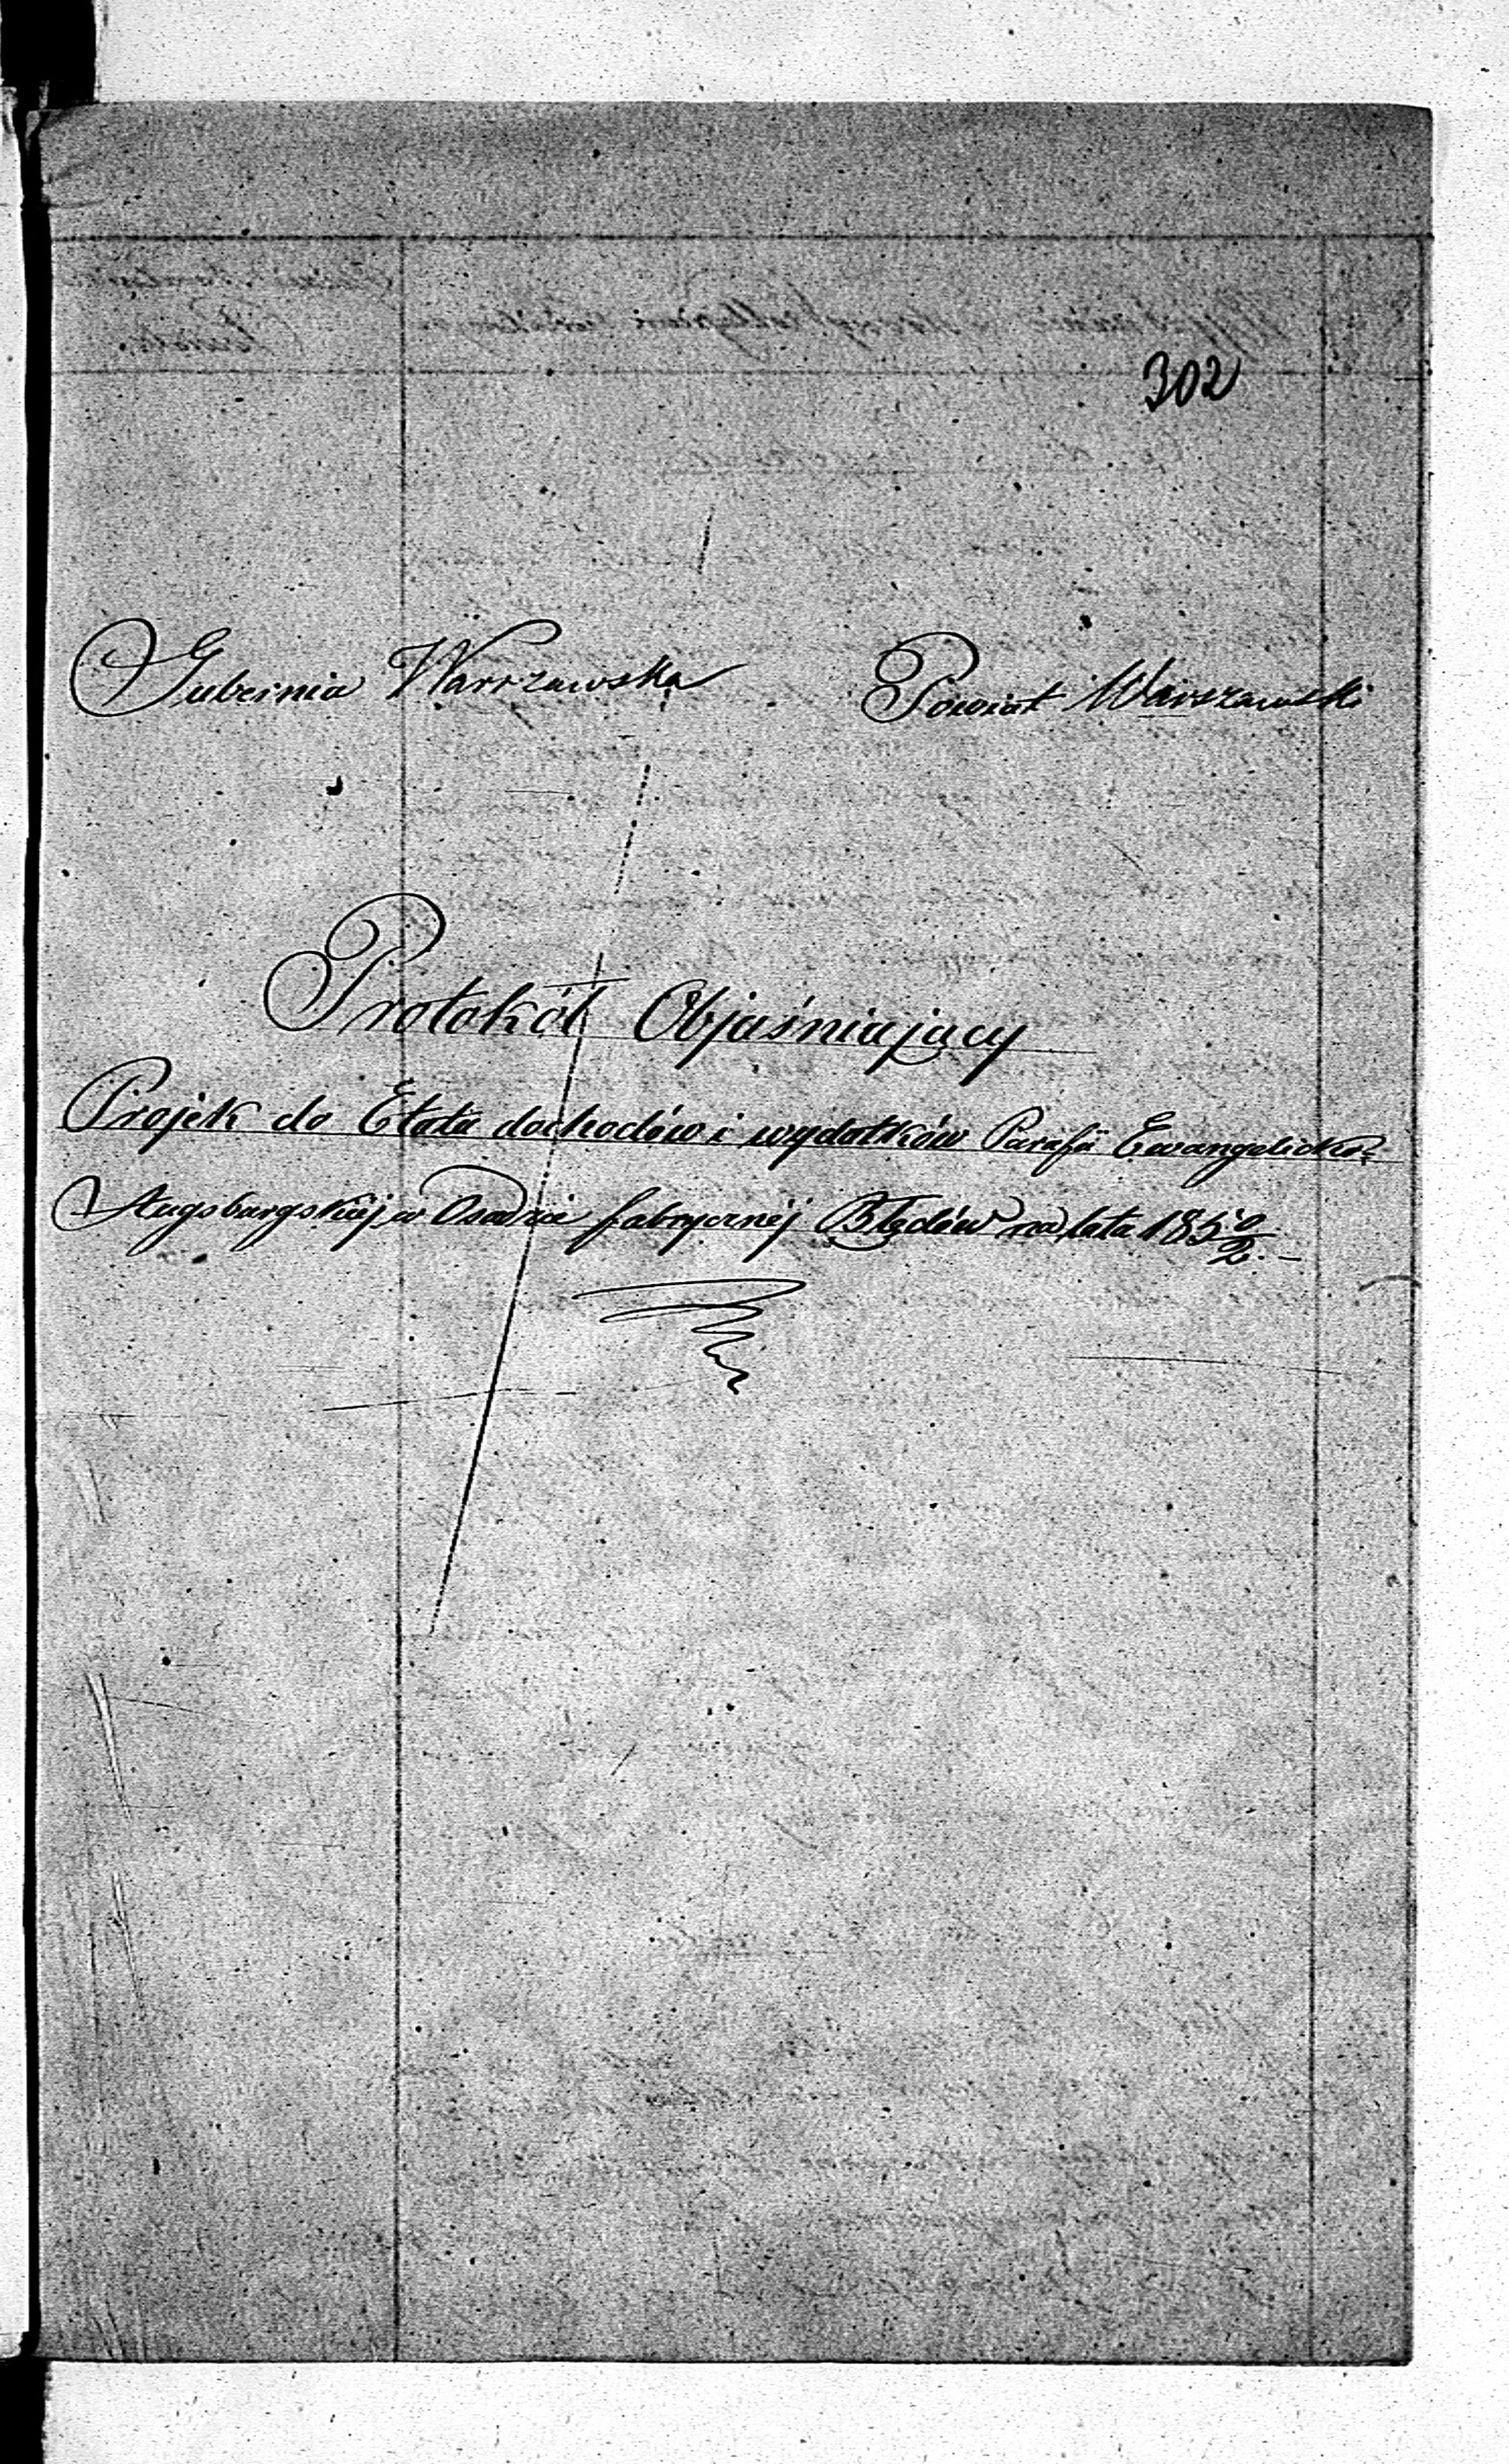 302
Gubernia Warszawska Powiat Warszawski
Protokół Objaśniający
Projek do Etatu dochodów i wydatków Parafii Ewangelicko-
Augsburgskiéj w Osadzie fabrycznéj Błędów na lata 1850/2.